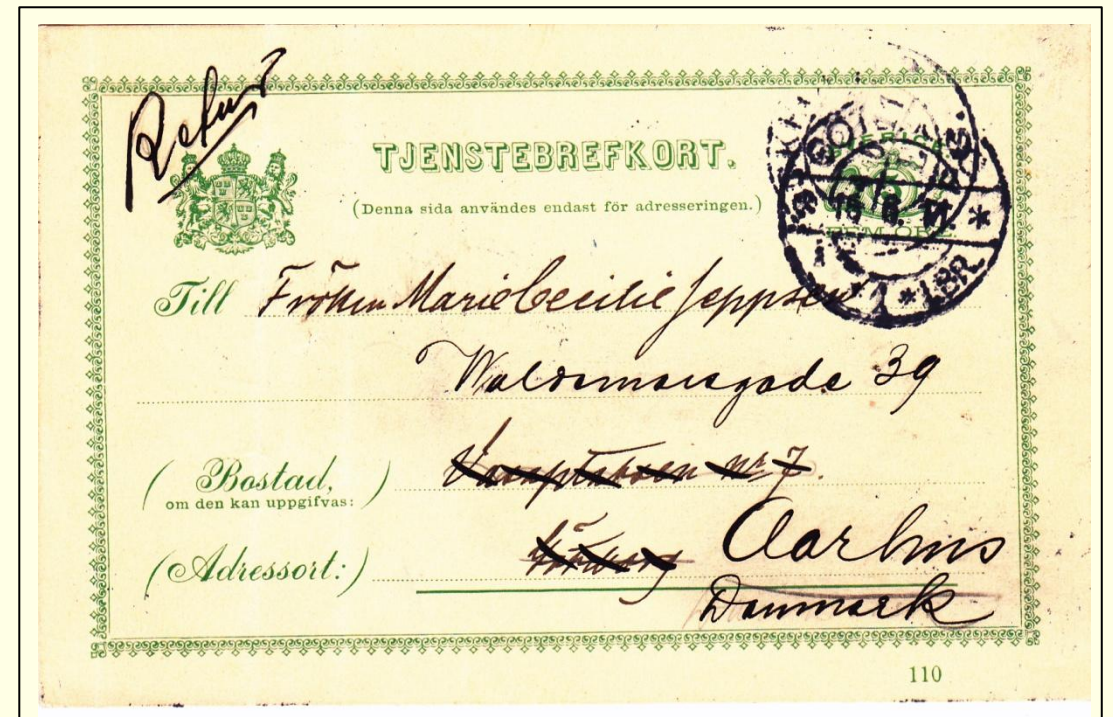 Retur
TJENSTEBREFKORT.
(Denna sida användes endast för adresseringen.)
FEM ÖRE.
Till Fröken Marie Cecilie Jeppsen
Waldemarsgade 39
(Bostad,
om den kan uppgifvas:)
nr 7.
(Adressort:) Aarhus
Danmark
110